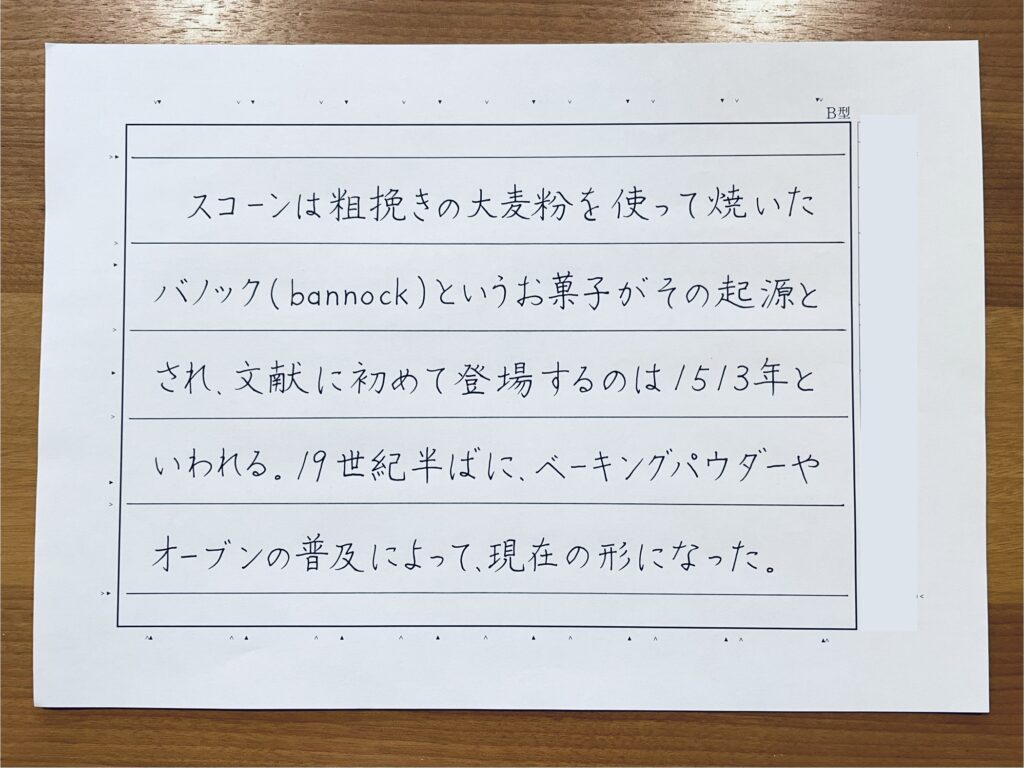 B型
スコーンは粗挽きの大麦粉を使って焼いた
バノック(bannock)というお菓子がその起源と
され、文献に初めて登場するのは1513年と
いわれる。19世紀半ばに、ベーキングパウダーや
オーブンの普及によって、現在の形になった。